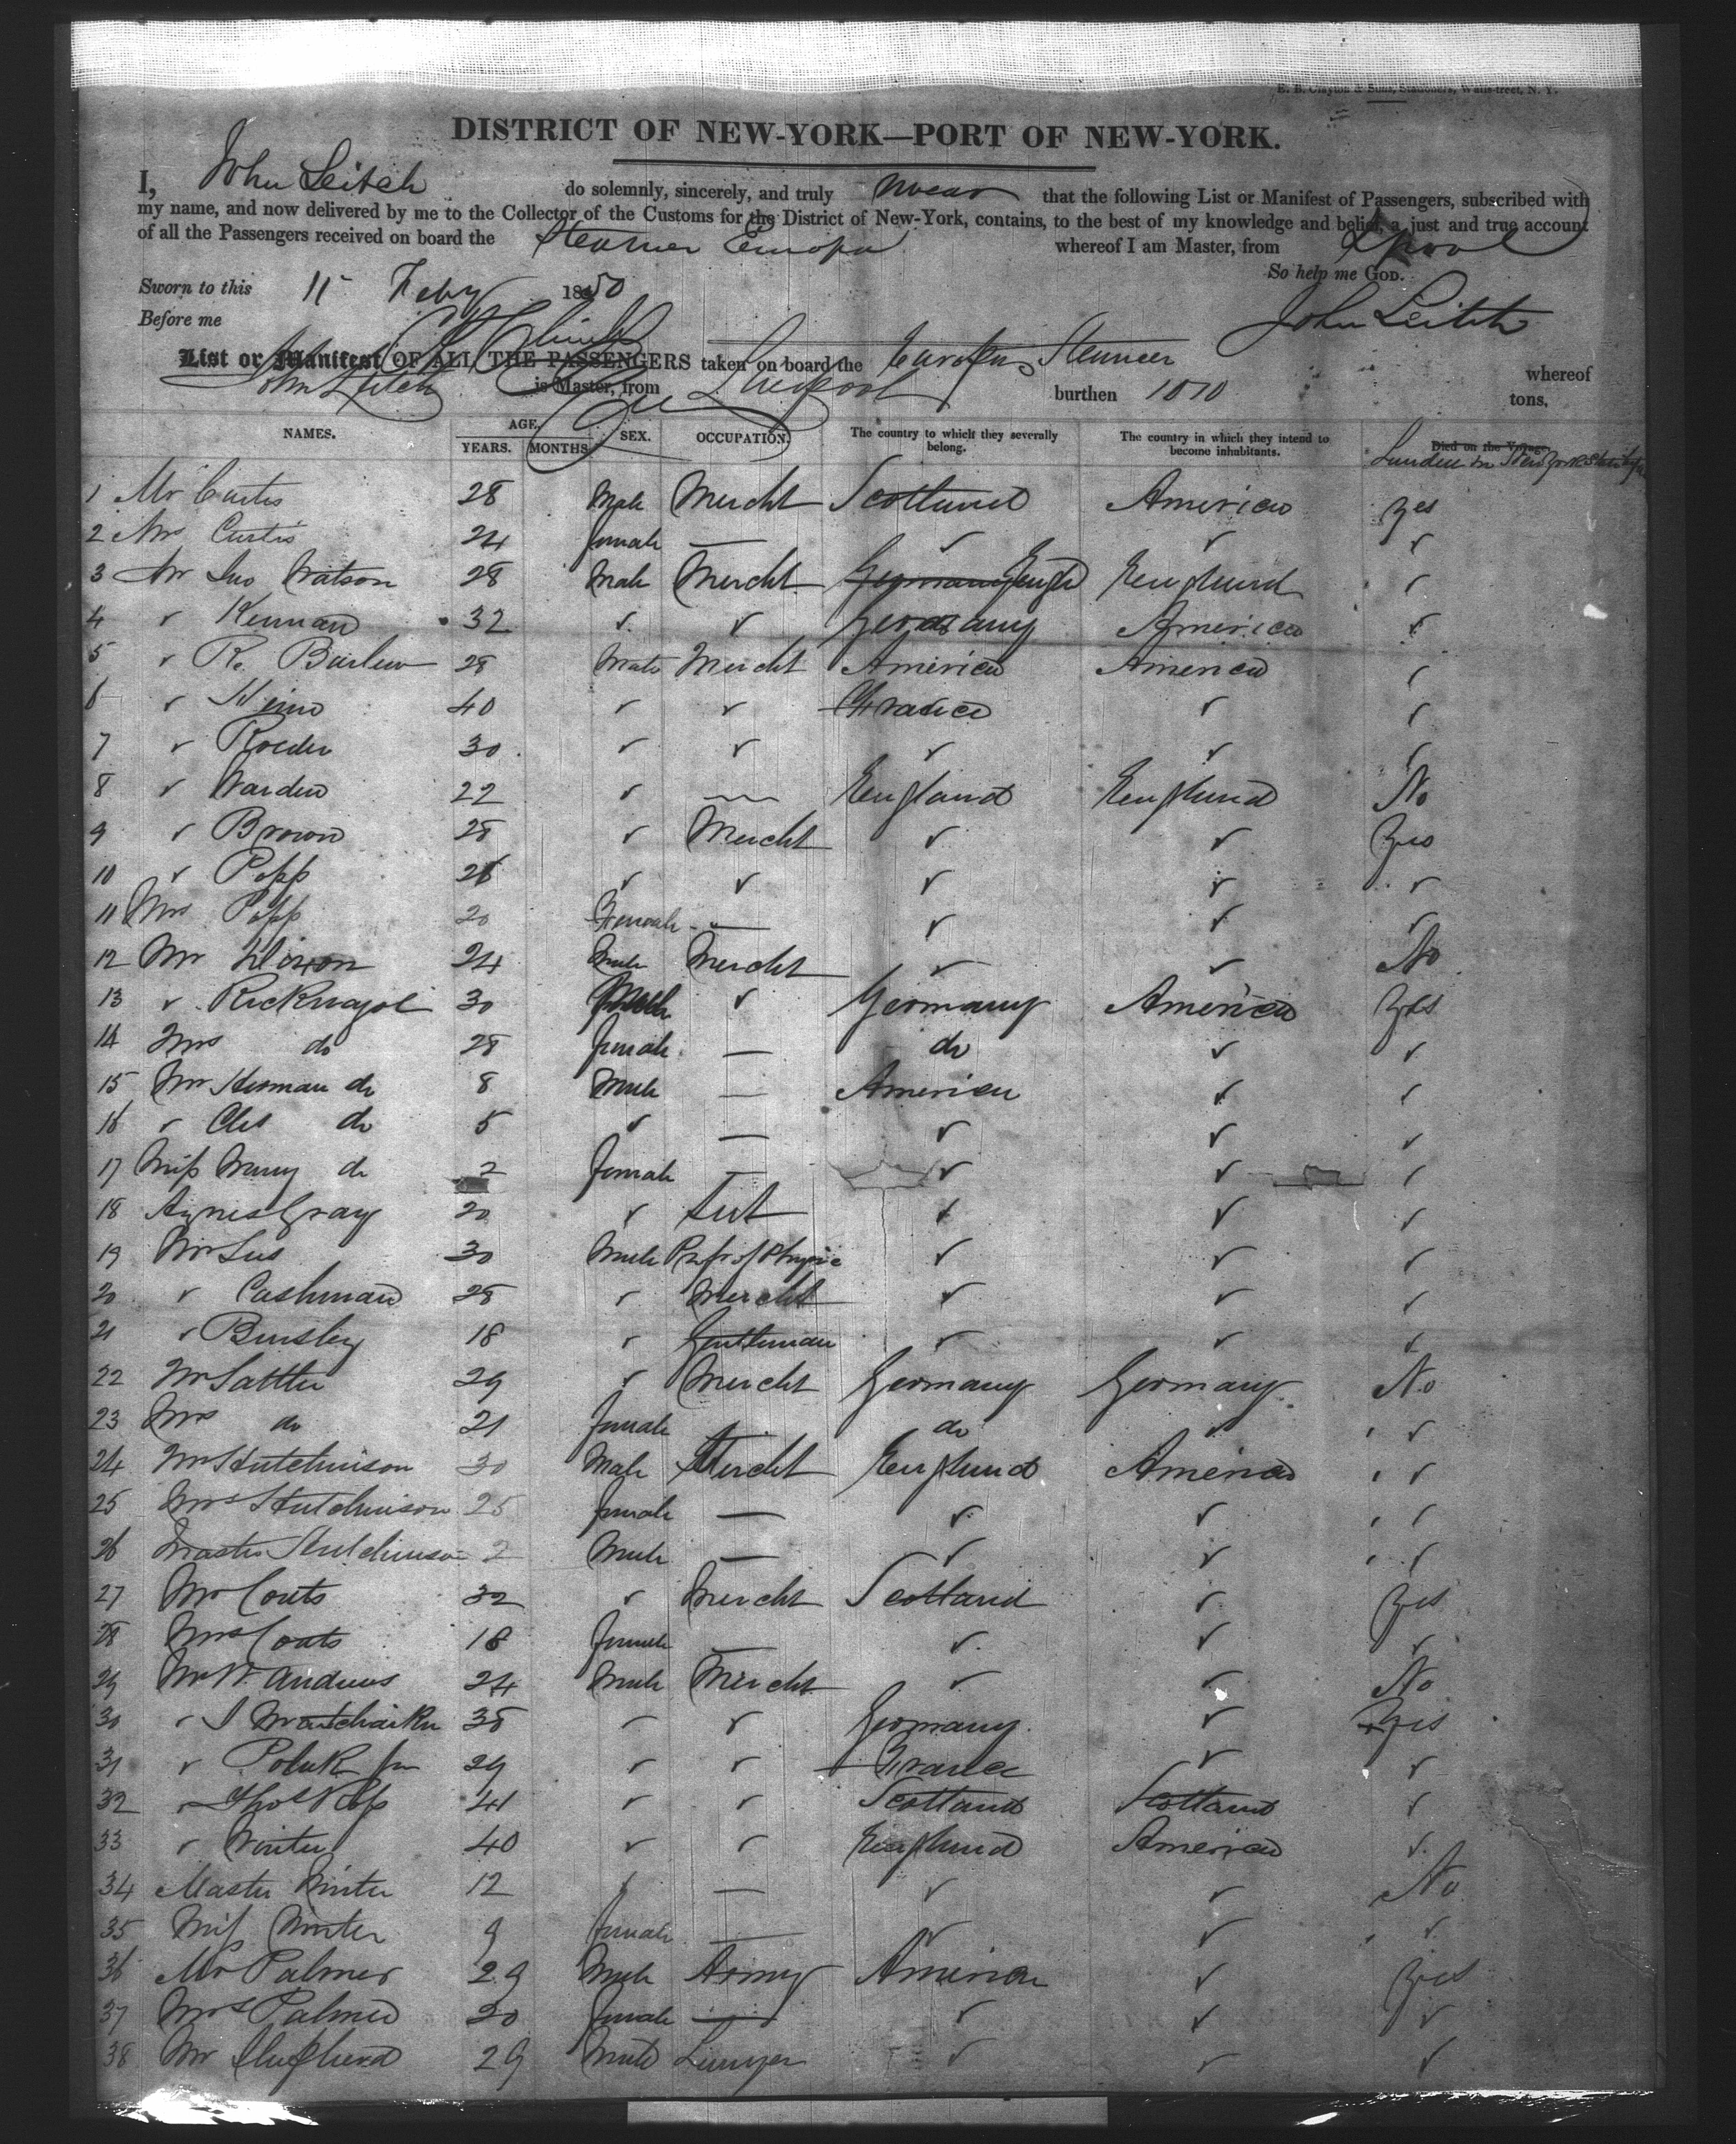 E. B. Clayton & Sons, Stationers, Wall-street, N. Y.
DISTRICT OF NEW-YORK—PORT OF NEW-YORK.
I, John Leitch do solemnly, sincerely, and truly swear that the following List or Manifest of Passengers, subscribed with
my name, and now delivered by me to the Collector of the Customs for the District of New-York, contains, to the best of my knowledge and belief, a just and true account
of all the Passengers received on board the Steamer Europa whereof I am Master, from Lpool
So help me GOD.
Sworn to this 11 Feby 1850
Before me John Leitch
List or Manifest OF ALL THE PASSENGERS taken on board the Steamer whereof
John Leitch is Master, from Liverpool burthen tons.
NAMES. AGE. YEARS. MONTHS. SEX. OCCUPATION. The country to which they severally belong. The country in which they intend to become inhabitants. Died on the Voyage.
1 Mr Curtis 28 Male Mercht Scotland America Yes
2 Mrs Curtis 24 female — ✓ ✓ ✓
3 Mr Jno Watson 28 Male Mercht England ✓
4 ✓ 32 ✓ ✓ Germany America ✓
5 ✓ R. Barlow 28 Male Mercht America America ✓
6 ✓ 40 ✓ ✓ France ✓ ✓
7 ✓ Roeder 30 ✓ ✓ ✓ ✓ ✓
8 ✓ Warden 22 ✓ — England England No
9 ✓ Brown 28 ✓ Mercht ✓ ✓ Yes
10 ✓ Popp ✓ ✓ ✓ ✓ ✓
11 Mrs Popp 20 Female — ✓ ✓ ✓
12 Mr Dixon 24 Male Mercht ✓ ✓ No
13 ✓ 30 Male ✓ Germany America Yes
14 Mrs do 28 female — do ✓ ✓
15 Mr Herman do 8 Male — America ✓ ✓
16 ✓ Chs do 5 ✓ — ✓ ✓ ✓
17 Miss Mary do 2 female — ✓ ✓ ✓
18 Agnes Gray 20 ✓ ✓ ✓ ✓
19 Mr 30 Male Prof of Physic ✓ ✓ ✓
20 ✓ Cashman 28 ✓ Mercht ✓ ✓ ✓
21 ✓ 18 ✓ Gentleman ✓ ✓ ✓
22 Mr Sattler 29 ✓ Mercht Germany Germany No
23 Mrs do 21 female do ✓ ✓
24 Mr Hutchinson 30 Male Mercht England America ✓
25 Mrs Hutchinson 25 female — ✓ ✓ ✓
26 Master Hutchinson 2 Male — ✓ ✓ ✓
27 Mr Coats 32 ✓ Mercht Scotland ✓ Yes
28 Mrs Coats 18 female — ✓ ✓ ✓
29 Mr W. Andrews 24 Male Mercht ✓ ✓ No
30 ✓ 38 ✓ ✓ Germany ✓ Yes
31 ✓ 29 ✓ ✓ France ✓ ✓
32 ✓ Thos 41 ✓ ✓ Scotland Scotland ✓
33 ✓ Winter 40 ✓ ✓ England America ✓
34 Master Winter 12 ✓ — ✓ ✓ No
35 Miss Winter 9 female — ✓ ✓ ✓
36 Mr Palmer 29 Male Army America ✓ Yes
37 Mrs Palmer 20 female — ✓ ✓ ✓
38 Mr Shepherd 29 Male Lawyer ✓ ✓ ✓